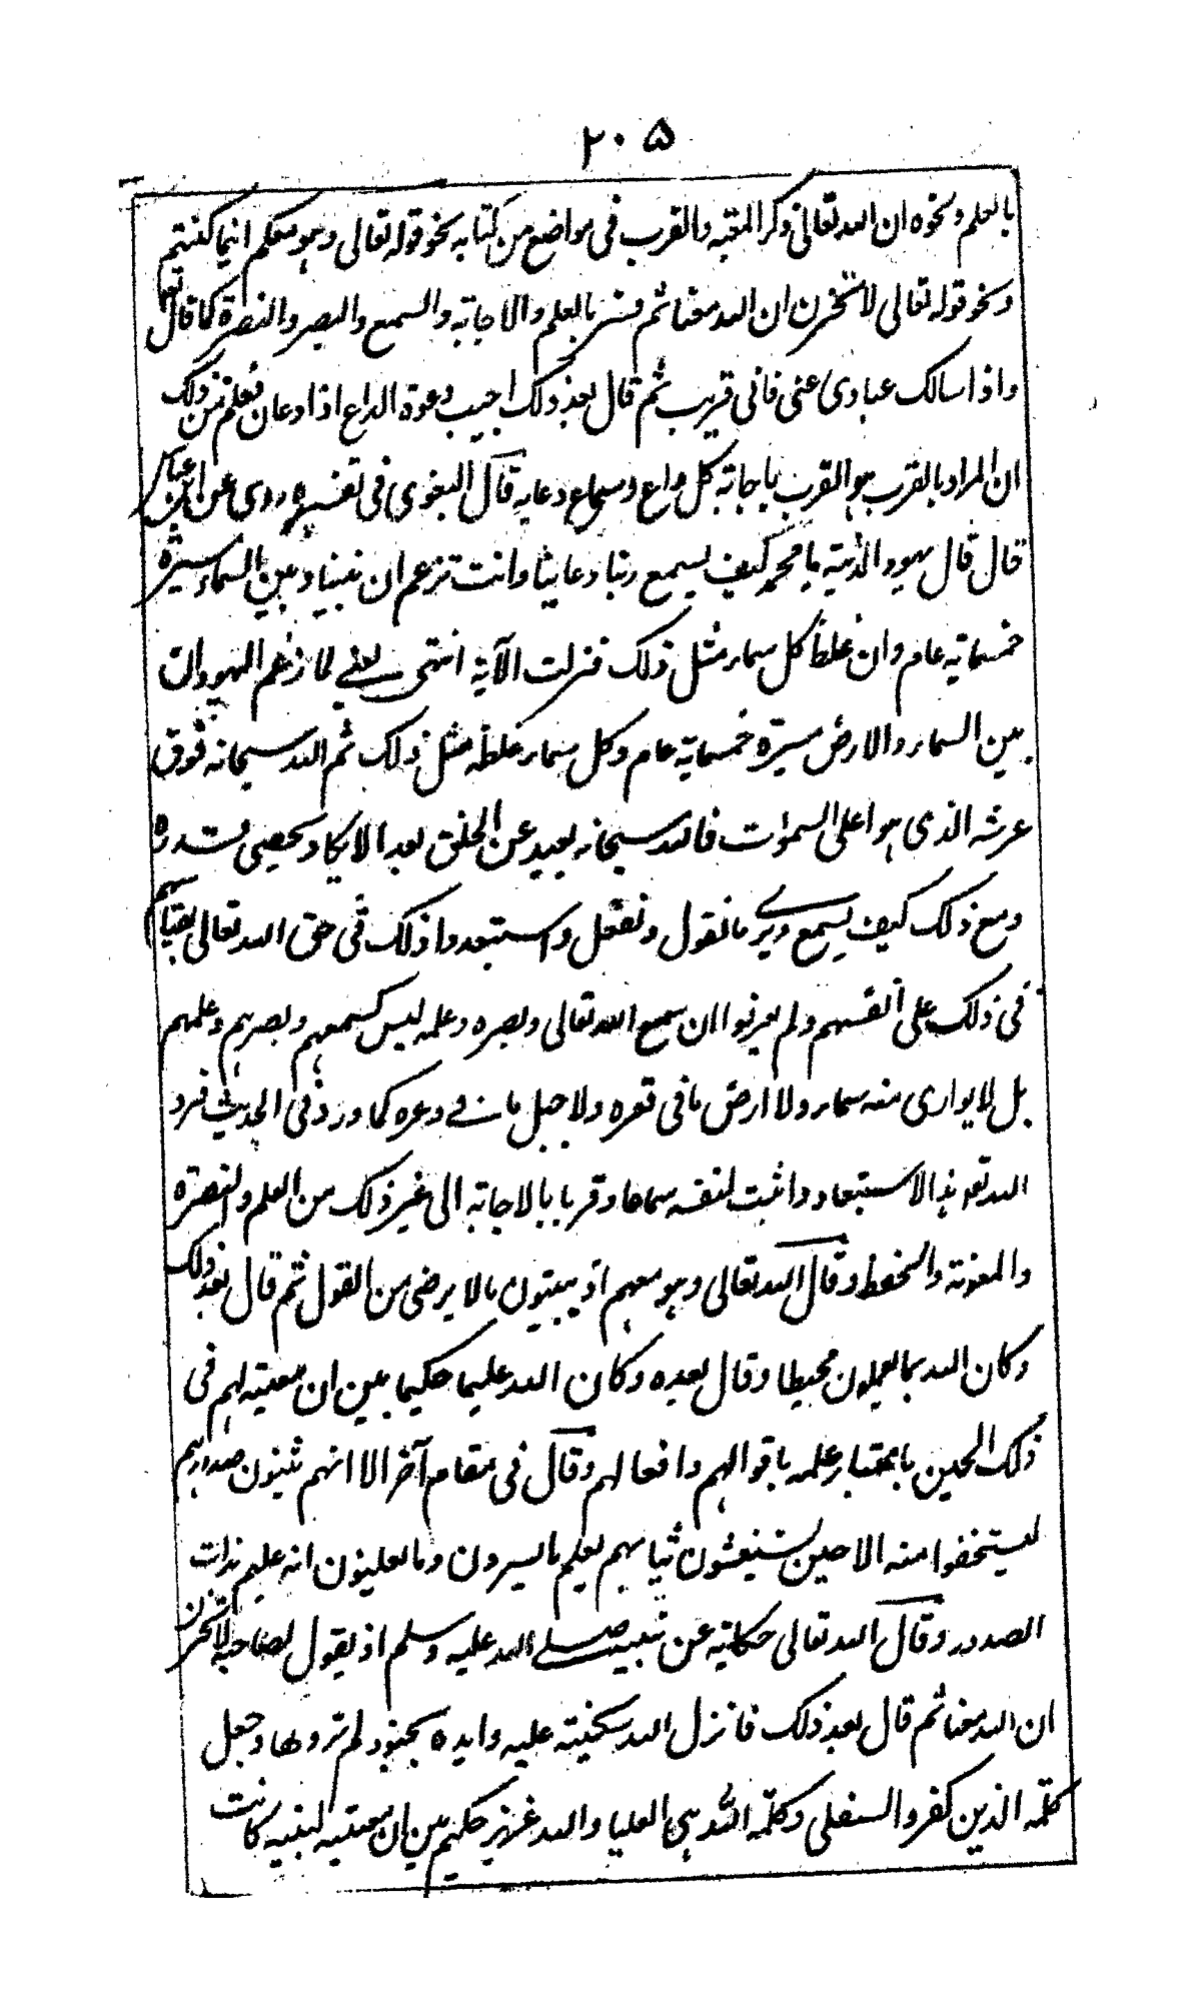 ٢٠٥
بالعلم ونحوه ان الله تعالى ذكر المعية والقرب فى مواضع من كتابه نحو قوله تعالى وهو معكم اينما كنتم
ونحو قوله تعالى لا تحزن ان الله معنا ثم فسر بالعلم والاجابة والسمع والبصر والنصرة كما قال تعا
واذا سالك عبادى عنى فانى قريب ثم قال بعد ذلك اجيب دعوة الداع اذا دعان فعلم من ذلك
ان المراد بالقرب هو القرب باجابة كل داع وسماع دعايه قال البغوى فى تفسيره روى عن ابن عباس
قال قال يهود المدينة يا محمد كيف يسمع ربنا دعايئا وانت تزعم ان بيننا وبين السماء مسيرة
خمسماية عام وان غلظ كل سماء مثل ذلك فنزلت الآية انتهى يعنى لما زعم اليهود ان
بين السماء والارض مسيرة خمسماية عام وكل سماء غلظه مثل ذلك ثم الله سبحانه فوق
عرشه الذى هو اعلى السموات فالله سبحانه بعيد عن الخلق بعدا لا يكاد يحصى قدره
ومع ذلك كيف يسمع ويرى ما نقول ونفعل واستبعدوا ذلك فى حق الله تعالى بقياسهم
فى ذلك على انفسهم ولم يعرفوا ان سمع الله تعالى وبصره وعلمه ليس كسمعهم وبصرهم وعلمهم
بل لا يوارى منه سماء ولا ارض ما فى قعره ولا جبل ما فى وعره كما ورد فى الحديث فرد
الله تعالى هذا الاستبعاد واثبت لنفسه سماعا وقربا بالاجابة الى غير ذلك من العلم والنصرة
والمعونة والحفظ وقال الله تعالى وهو معهم اذ يبيتون ما لا يرضى من القول ثم قال بعد ذلك
وكان الله بما يعملون محيطا وقال بعده وكان الله عليما حكيما بين ان معيته لهم فى
ذلك الحين باعتبار علمه باقوالهم وافعالهم وقال فى مقام آخر الا انهم يثنون صدورهم
ليستخفوا منه الا حين يستغشون ثيابهم يعلم ما يسرون وما يعلنون انه عليم بذات
الصدور وقال الله تعالى حكاية عن نبيه صلى الله عليه وسلم اذ يقول لصاحبه لا تحزن
ان الله معنا ثم قال بعد ذلك فانزل الله سكينته عليه وايده بجنود لم تروها وجعل
كلمة الذين كفروا السفلى وكلمة الله هى العليا والله عزيز حكيم بين ان معيته لنبيه كانت